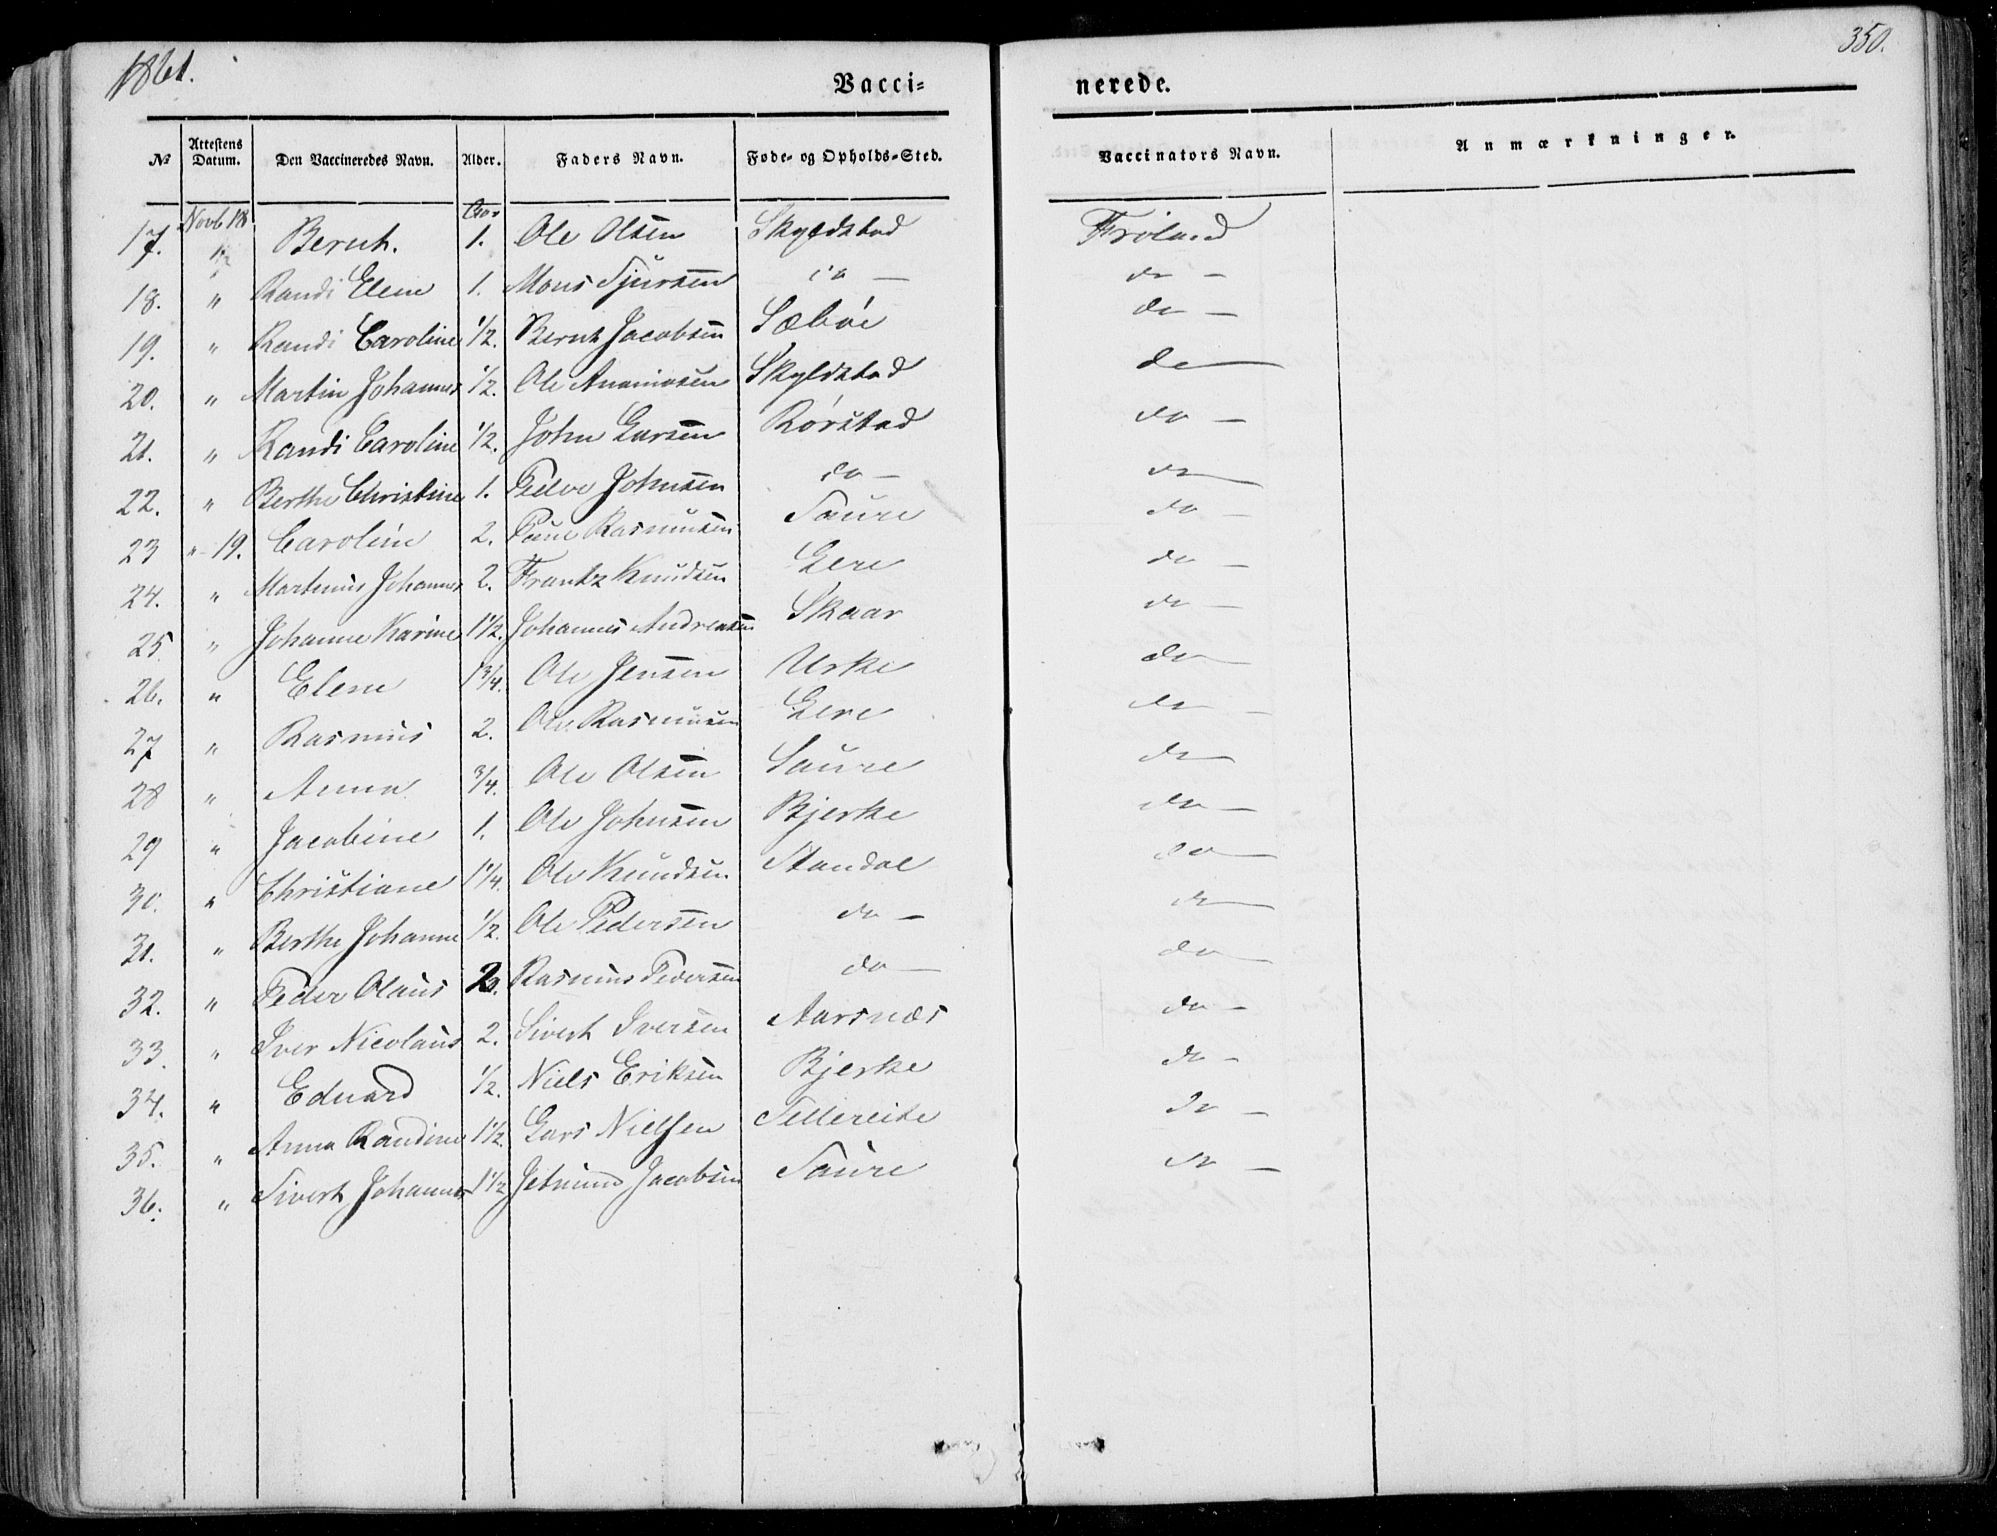 1861.
350.
Vacci-
nerede.
№ Attestens Datum. Den Vaccineredes Navn. Alder. Faders Navn. Føde- og Opholds-Sted. Vaccinators Navn. Anmærkninger.
17. Novb 18 Bernt. 1. Ole Olsen Skyldstad Frøland
18. " Randi Elene 1. Mons Sjursen do — do —
19. " Randi Caroline 1/2. Bernt Jacobsen Sæbøe do —
20. " Martin Johannes 1/2. Ole Skyldstad do
21. " Randi Caroline 1/2. John Larsen Rørstad do —
22. " Berthe Christine 1. Peder Johnsen do — do
23 " 19. Caroline 2. Rasmussen Saure do —
24. " Martinus Johannes 2. Frantz Knudsen Lere do —
25 " Johanne Karine 1 1/2. Johannes Andreasen Skaar do —
26. " Elene 1 3/4. Ole Jensen Urke do
27 " Rasmus 2. Ole Rasmusen Lere do —
28 " Anna 3/4. Ole Olsen Saure do
29 " Jacobine 1. Ole Johnsen Bjerke do —
30. " Christiane 1 1/4. Ole Knudsen Standal do
31. " Berthe Johanne 1/2. Ole Pedersen do — do
32. " Peder Olaus 2. Rasmus Pedersen do — do
33. " Iver Nicolaus 2. Sivert Iversen Aarsnæs do —
34. " Eduard 1/2. Niels Eriksen Bjerke do —
35. " Anna Randine 1 1/2. Lars Nielsen Tellereite do —
36. " Sivert Johannes 1 1/2 Jetmund Jacobsen Saure do —